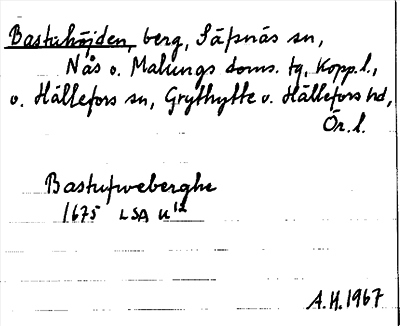 Bastuhöjden, berg, Säfsnäs sn,
Nås o. Malungs doms. tg, Kopp. l.,
o. Hällefors sn, Grythytte o. Hällefors hd,
Ör. l.
Bastufweberghe
1675 LSA U¹²
A.H. 1967